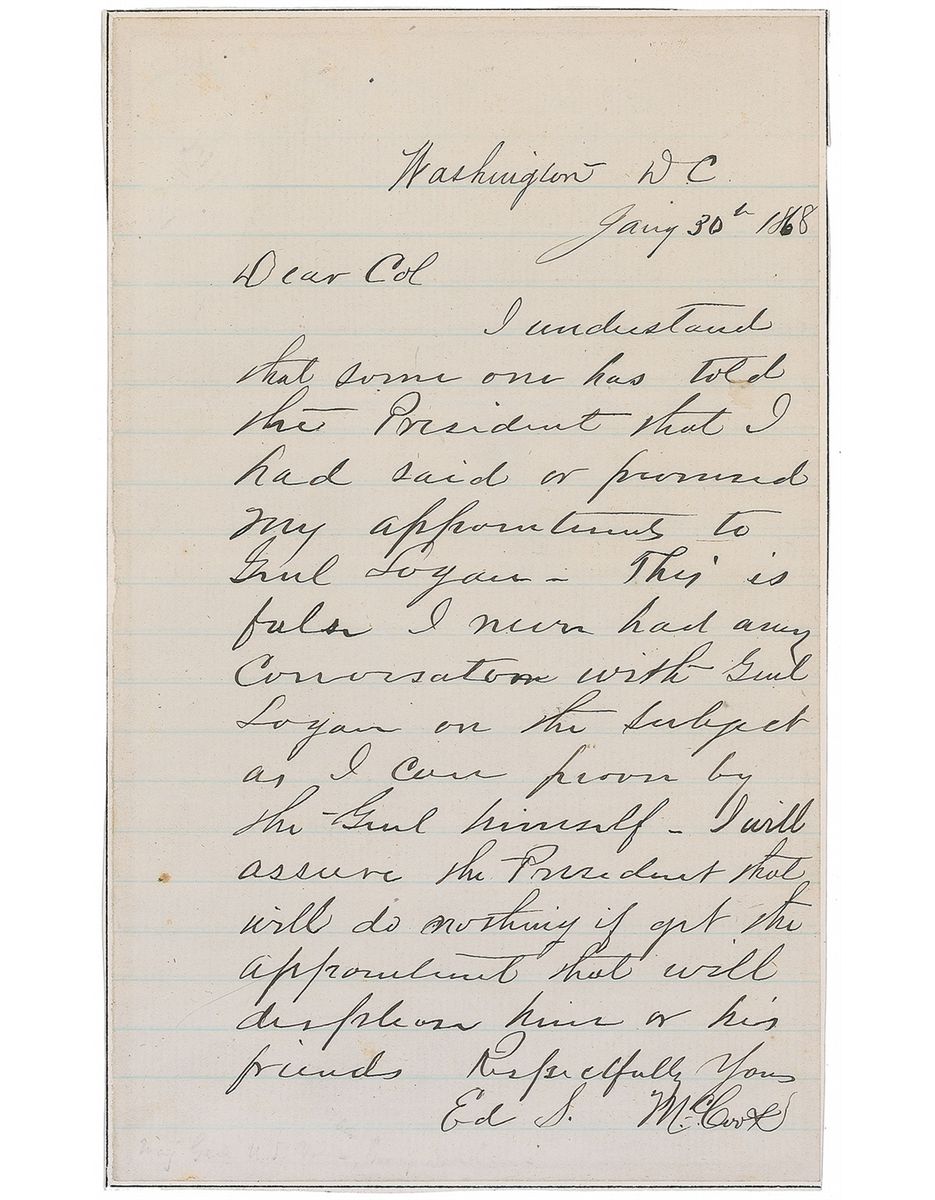 Washington D C
Jany 30th 1868
Dear Col
I understand
that some one has told
the President that I
had said or promised
my appointments to
Genl Logan - This is
false I never had any
Conversation with Genl
Logan on the subject
as I can prove by
the Genl himself - I will
assure the President that
will do nothing if get the
appointment that will
displease him or his
friends Respectfully Yours
Ed S. McCook